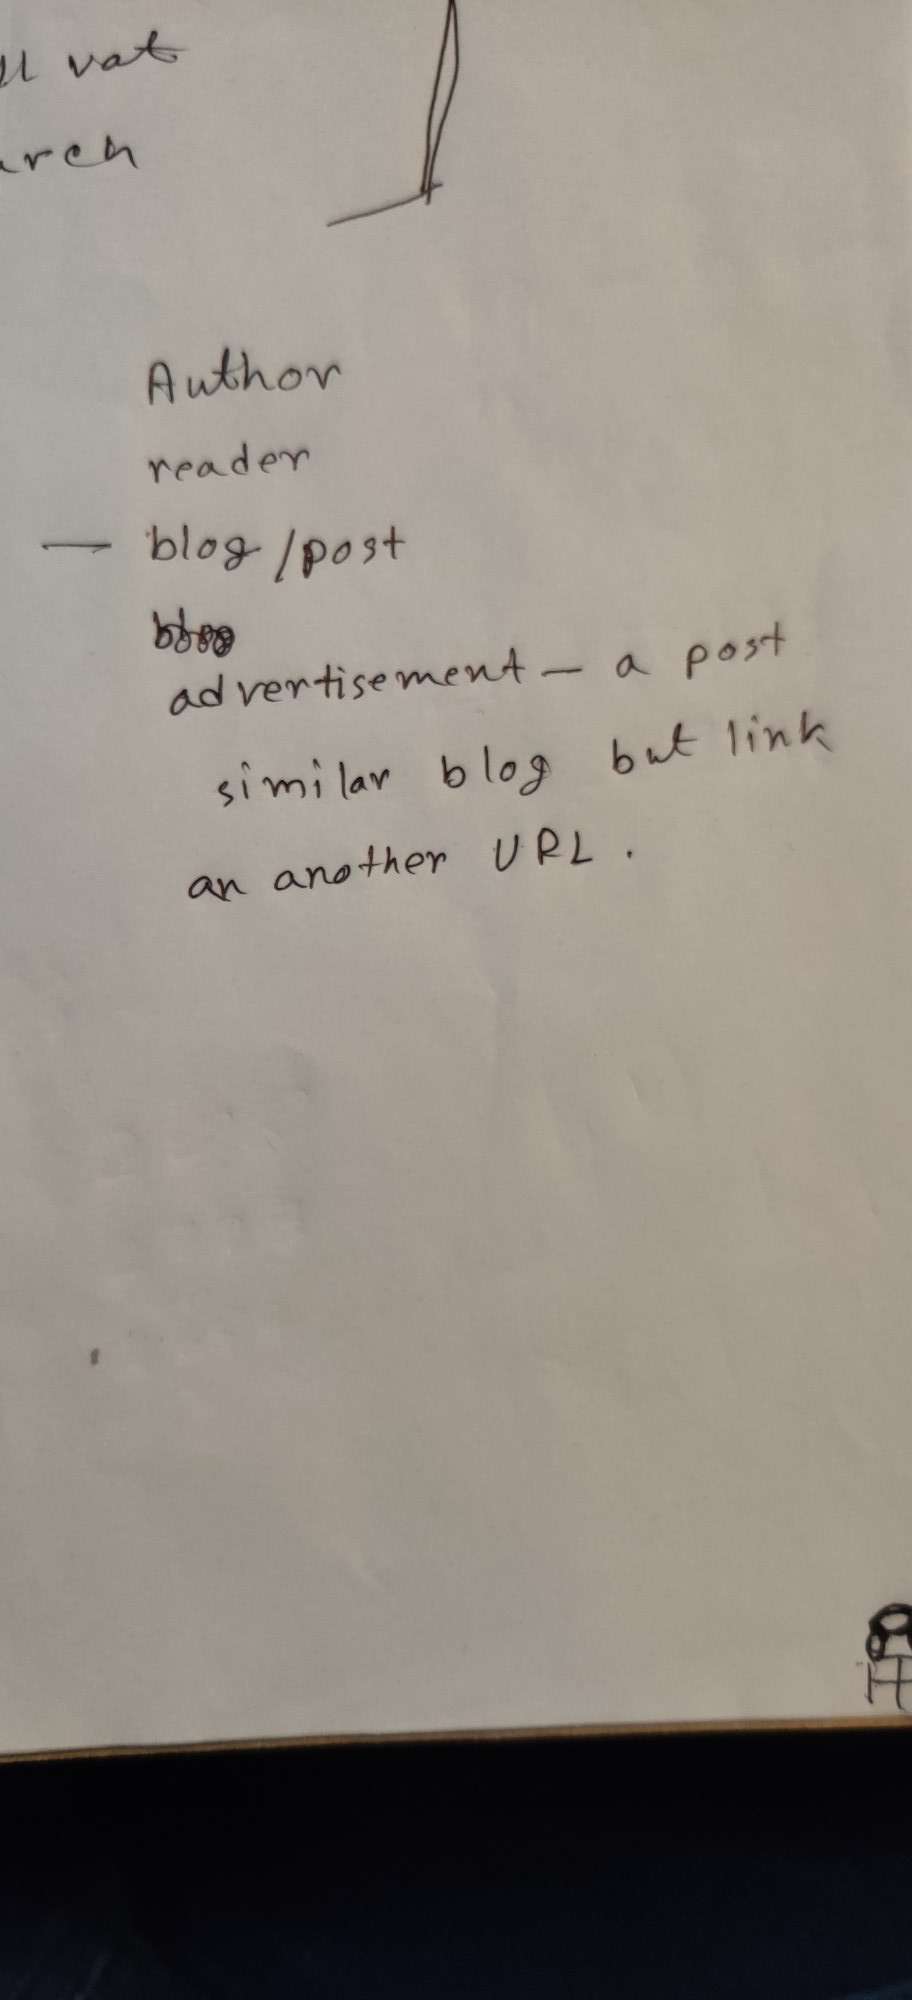 vat
Author
reader
— blog/post
advertisement — a post
similar blog but link
an another URL.